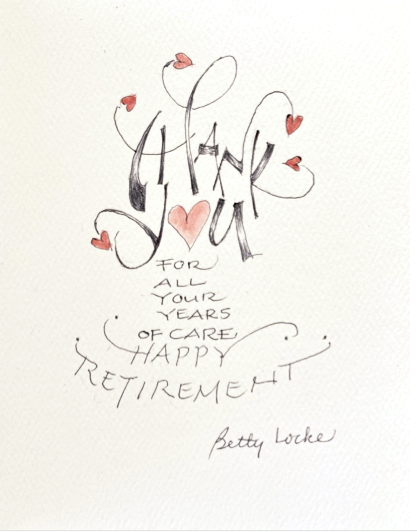 THANK
YOU
FOR
ALL
YOUR
YEARS
OF CARE
HAPPY
RETIREMENT
Betty Locke